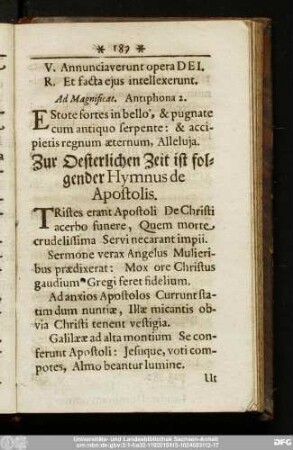 * 189 *
V. Annunciaverunt opera DEI.
R. Et facta ejus intellexerunt.
Ad Magnificat. Antiphona 2.
EStote fortes in bello, & pugnate
cum antiquo serpente: & acci-
pietis regnum æternum, Alleluja.
Zur Oesterlichen Zeit ist fol-
gender Hymnus de
Apostolis.
TRistes erant Apostoli De Christi
acerbo funere, Quem morte
crudelissima Servi necarant impii.
Sermone verax Angelus Mulieri-
bus prædixerat: Mox ore Christus
gaudium Gregi feret fidelium.
Ad anxios Apostolos Currunt sta-
tim dum nuntiæ, Illæ micantis ob-
via Christi tenent vestigia.
Galilææ ad alta montium Se con-
ferunt Apostoli: Jesuque, voti com-
potes, Almo beantur lumine.
Ut
Universitäts- und Landesbibliothek Sachsen-Anhalt